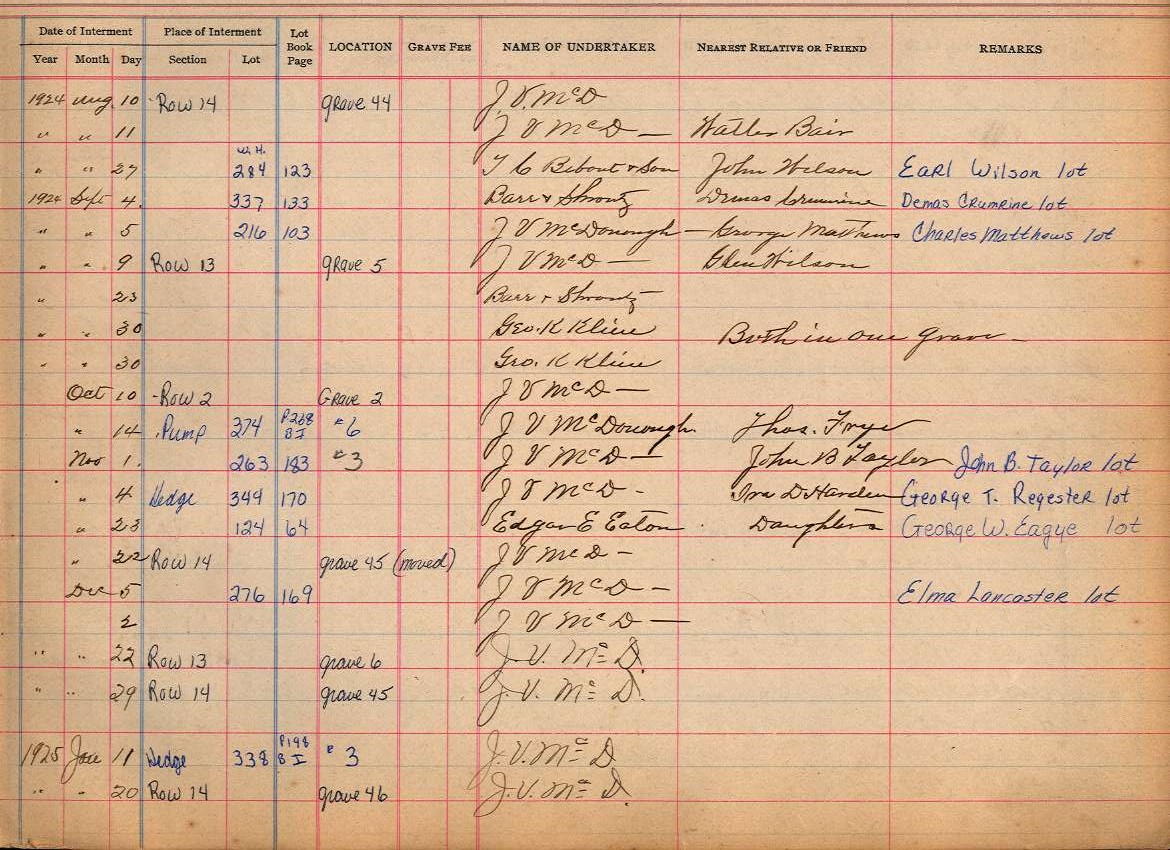 Date of Interment Place of Interment Lot Book Page LOCATION GRAVE FEE NAME OF UNDERTAKER NEAREST RELATIVE OR FRIEND REMARKS
Year Month Day Section Lot
1924 Aug. 10 Row 14 grave 44 J. V. McD
" " 11 J V McD — Walter Bair
" " 27 W.H. 284 123 T C Bebout & Son John Wilson Earl Wilson lot
1924 Sept 4. 337 133 Barr & Shrontz Demas Crumrine Demas Crumrine lot
" " 5 216 103 J V McDonough — George Mathews Charles Matthews lot
" " 9 Row 13 grave 5 J V McD — Glen Wilson
" 23 Barr & Shrontz
" " 30 Geo. K Kline Both in one grave —
" " 30 Geo. K Kline
Oct 10 Row 2 Grave 2 J V McD —
" 14 Pump 274 P268 B I #6 J V McDonough. Thos. Frye
Nov 1. 263 183 #3 J V McD — John B Taylor John B. Taylor lot
" 4 Hedge 344 170 J V McD - Ira D Harden George T. Regester lot
" 23 124 64 Edgar E Eaton Daughters George W. Eagye lot
" 22 Row 14 grave 45 (moved) J V McD -
Dec 5 276 169 J V McD - Elma Lancaster lot
2 J V McD —
" " 22 Row 13 grave 6 J. V. Mc D.
" " 29 Row 14 grave 45 J. V. Mc D.
1925 Jan 11 Hedge 338 P198 B I # 3 J. V. Mc D
" " 20 Row 14 grave 46 J. V. Mc D.